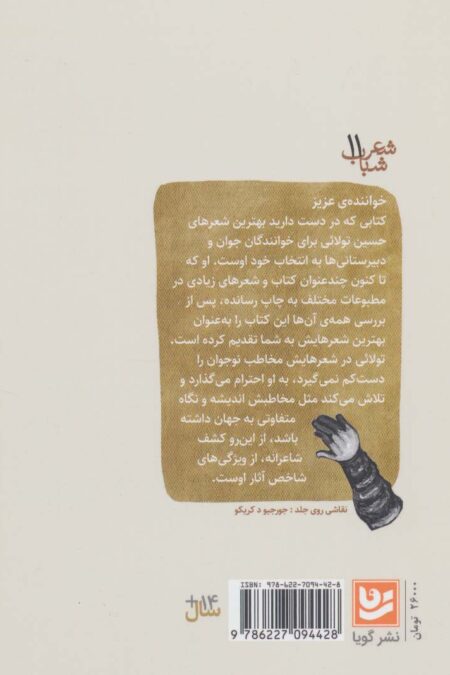 شعر
شباب ۱۱
خواننده‌ی عزیز
کتابی که در دست دارید بهترین شعرهای
حسین تولائی برای خوانندگان جوان و
دبیرستانی‌ها به انتخاب خود اوست. او که
تا کنون چندعنوان کتاب و شعرهای زیادی در
مطبوعات مختلف به چاپ رسانده، پس از
بررسی همه‌ی آن‌ها این کتاب را به‌عنوان
بهترین شعرهایش به شما تقدیم کرده است.
تولائی در شعرهایش مخاطب نوجوان را
دست‌کم نمی‌گیرد، به او احترام می‌گذارد و
تلاش می‌کند مثل مخاطبش اندیشه و نگاه
متفاوتی به جهان داشته
باشد، از این‌رو کشف
شاعرانه، از ویژگی‌های
شاخص آثار اوست.
نقاشی روی جلد : جورجیو د کریکو
ISBN: 978-622-7094-42-8
9 786227 094428
+۱۴
سال
نشر گویا
۲۶۰۰۰ تومان